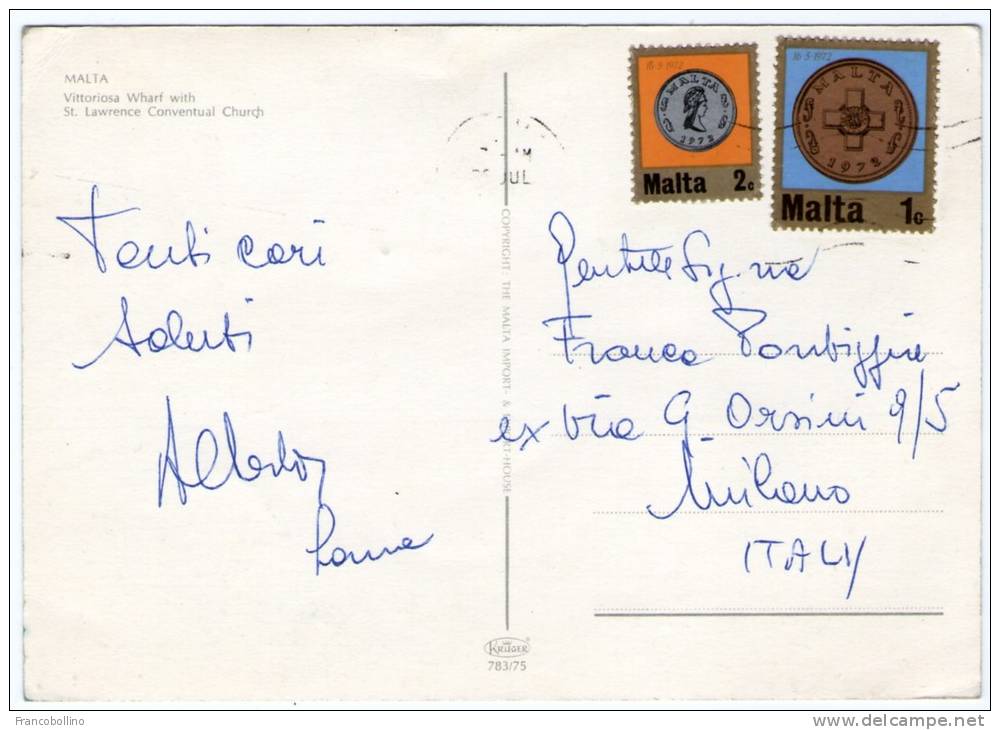 MALTA
Vittoriosa Wharf with
St. Lawrence Conventual Church
Tanti cari
saluti
16·5·1972
MALTA
1972
Malta 2c
16·5·1972
MALTA
1972
Malta 1c
AM
JUL
COPYRIGHT: THE MALTA IMPORT- & EXPORT-HOUSE
Gentile Sig.na
Franca
ex Via G. Orsini 9/5
Milano
ITALY
KRÜGER
783/75
Francobollino
www.delcampe.net